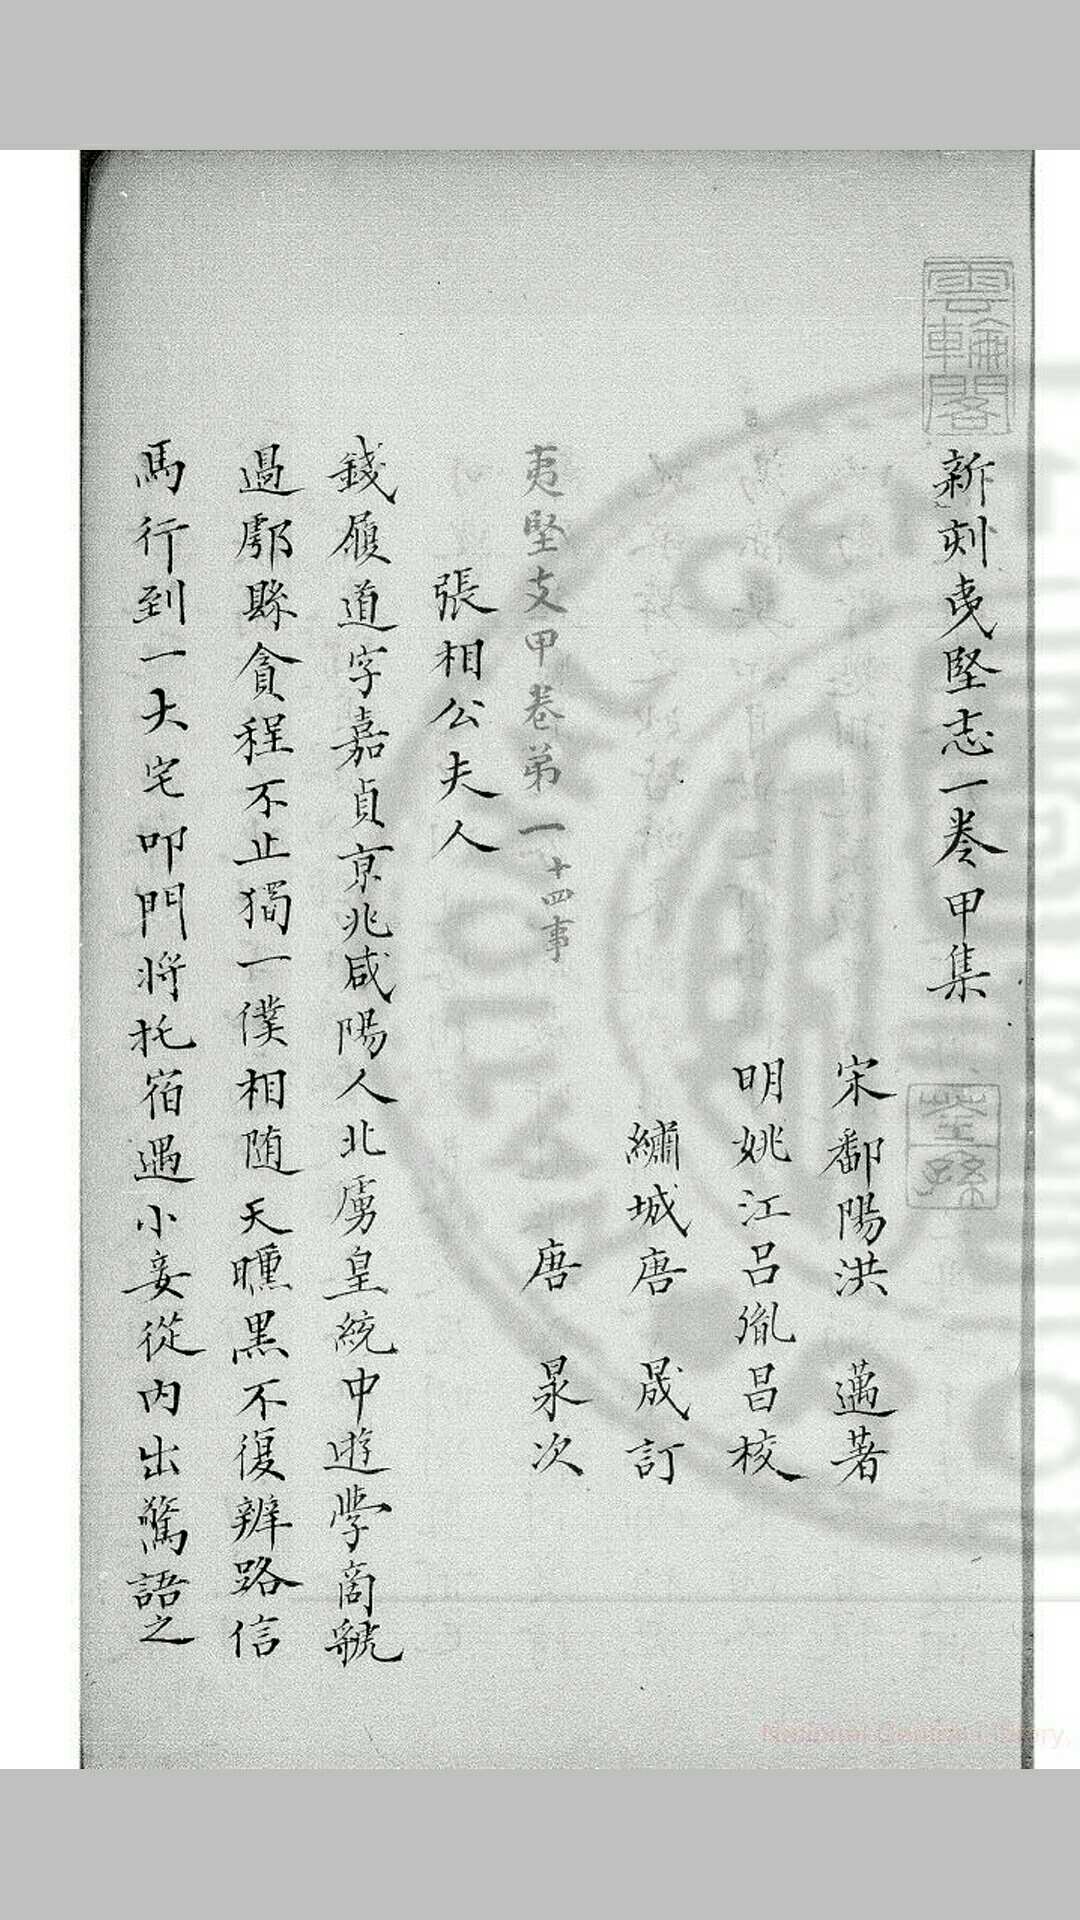 新刻夷堅志一卷甲集
宋鄱陽洪邁著
明姚江呂胤昌校
繡城唐晟訂
唐㫤次
夷堅支甲卷第一十四事
張相公夫人
錢履道字嘉貞京兆咸陽人北虜皇統中遊學商虢
過鄠縣貪程不止獨一僕相随天曛黑不復辨路信
馬行到一大宅叩門將托宿遇小妾從內出驚語之
雲輪閣
荃孫
National Central Library,